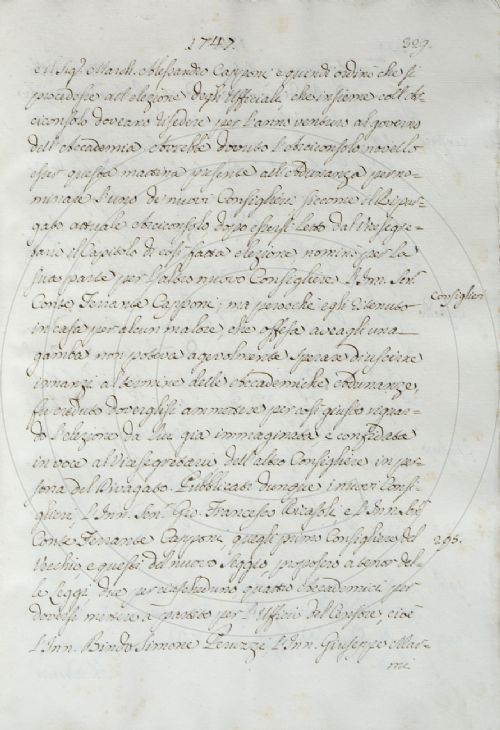 1747. 329.
e il Sig.r March. Alessandro Capponi e quindi ordinò che si
procedesse all'elezione degli Ufficiali che insieme coll'Ar-
ciconsolo doveano risedere per l'anno venturo al governo
dell'Accademia. Avrebbe dovuto l'Arciconsolo novello
esser questa mattina presente all'Adunanza per no-
minare l'uno de nuovi Consiglieri siccome il Ripur-
gato attuale Arciconsolo dopo essersi letto dal Vicesegre-
tario il Capitolo di così fatta elezione nominò per la
sua parte per l'altro nuovo Consigliere l'Inn. Ser.
Conte Ferrante Capponi; ma perocchè egli ritenuto
in casa per alcun malore, che offesa aveagli una
gamba non poteva agevolmente sperare di uscire
innanzi al termine delle Accademiche Adunanze,
fu creduto doverglisi ammettere per così giusto riguar-
do l'elezione da lui già immaginata e confidata
in voce al Vicesegretario dell'altro Consigliere in per-
sona del Rivagato. Pubblicato dunque i nuovi Consi-
glieri, l'Inn. Sen. Gio. Francesco Ricasoli, e l'Inn.
Conte Ferrante Capponi, quegli primo Consigliere del
Vecchio, e questi del nuovo Seggio, proposero a tenor del-
le Leggi due per ciascheduno quattro Accademici per
doversi mettere a partito per l'Uffizio del Censore, cioè
l'Inn. Bindo Simone Peruzzi l'Inn. Giuseppe Mar-
ni.
Consiglieri
295.